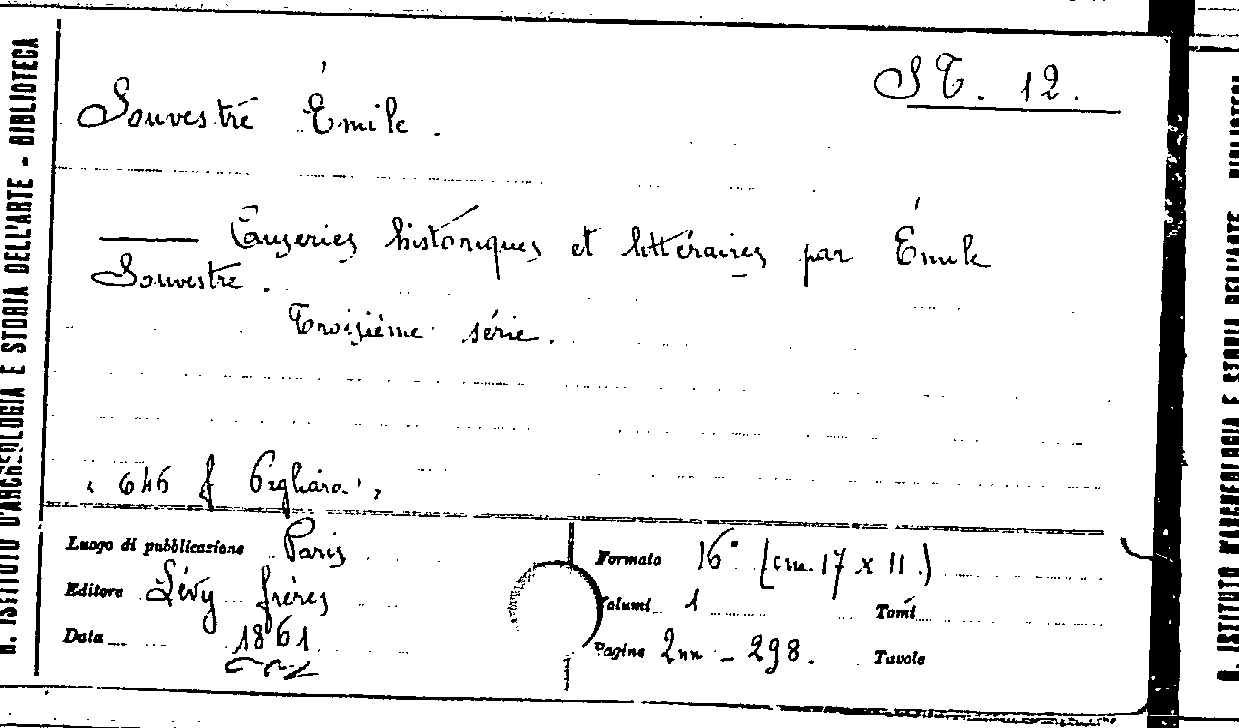 R. ISTITUTO D'ARCHEOLOGIA E STORIA DELL'ARTE - BIBLIOTECA
ST. 12.
Souvestre Émile.
—— Causeries historiques et littéraires par Émile
Souvestre.
Troisième série.
646 f Pagliara
Luogo di pubblicazione Paris
Editore Lévy frères
Data 1861
Formato 16° (cm. 17 x 11.)
Volumi 1
Tomi
Pagine 2nn - 298.
Tavole